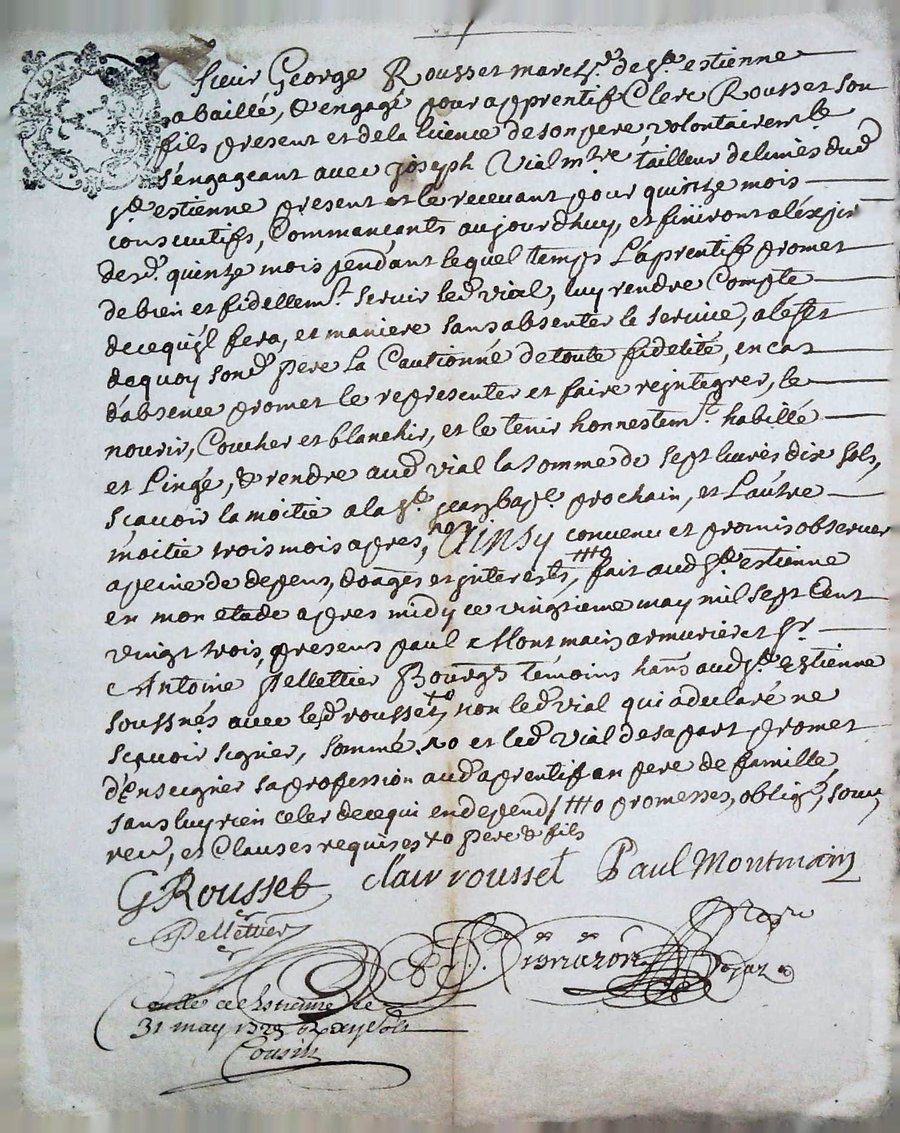 LION
Sieur George Rousset march.d de st estienne
a baillé, & engagé pour apprentif Clerc Rousset son
fils present et de la licence de son pere volontairem.t
s'engageant avec joseph Vial m.tre tailleur de limes dud.
st estienne present et le recevant pour quinze mois
consecutifs, Commancants aujourdhuy, et finiront
desd. quinze mois pendant lequel temps L'aprentif promet
de bien et fidellem.t servir led. vial, luy rendre Compte
de ce qu'jl fera, et maniera sans absenter le service, a
de quoy sond. pere la Cautionné de toute fidelité, en cas
d'absence promet le representer et faire rejntegrer, le
nourir, Coucher et blanchir, et le tenir honnestem.t habillé
et Lingé, & rendre aud. vial la somme de sept livres dix sols,
scavoir la moitié a la st jean bap.te prochain, et L'autre
moitié trois mois apres, Ainsy convenu et promis observer
a peine de depens, domages et jnterests, fait aud. st estienne
en mon etude apres midy ce vingtieme may mil sept Cent
vingt trois, presens paul Montmain armurier et sr.
Antoine Pellettier Bourg.s temoins hans aud. st Estienne
soussnés avec lesd. rousset, non led. vial qui a declaré ne
scavoir signer, sommé et led. vial de sa part promet
d'enseigner sa profession aud. aprentif en pere de famille
sans luy rien celer de ce qui en depend promesses, oblig.,
et Clauses requises pere & fils
G Rousset clair rousset Paul Montmain
Pelletier
31 may
Cousin